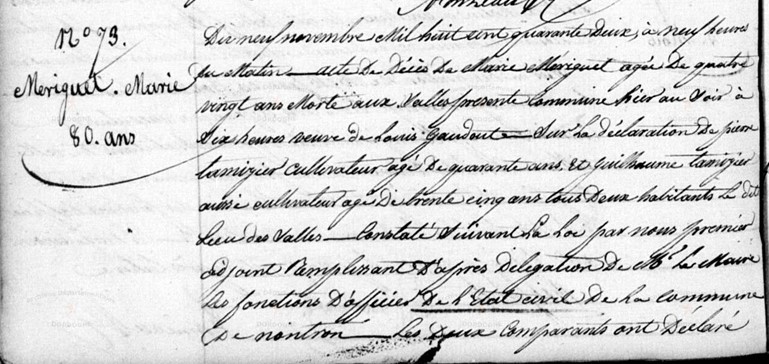 N.o 73.
Mériguet. Marie
80. ans
Dix neuf novembre Mil huit cent quarante Deux, à neuf heures
du Matin — acte De Décès De Marie Mériguet agée De quatre
vingt ans Morte aux Valles presente Commune hier au Soir à
Dix heures veuve de Louis Gaudout — Sur La déclaration De pierre
Lamizier cultivateur agé De quarante ans, Et Guilhaume Lamizier
aussi cultivateur agé De trente cinq ans tous Deux habitants Le dit
Lieu des Valles — Constaté Suivant La Loi par nous premier
adjoint Remplissant D'après Délégation De Mr Le Maire
Les fonctions D'officier De L'Etat civil De La commune
De nontron — Les Deux Comparants ont Déclaré